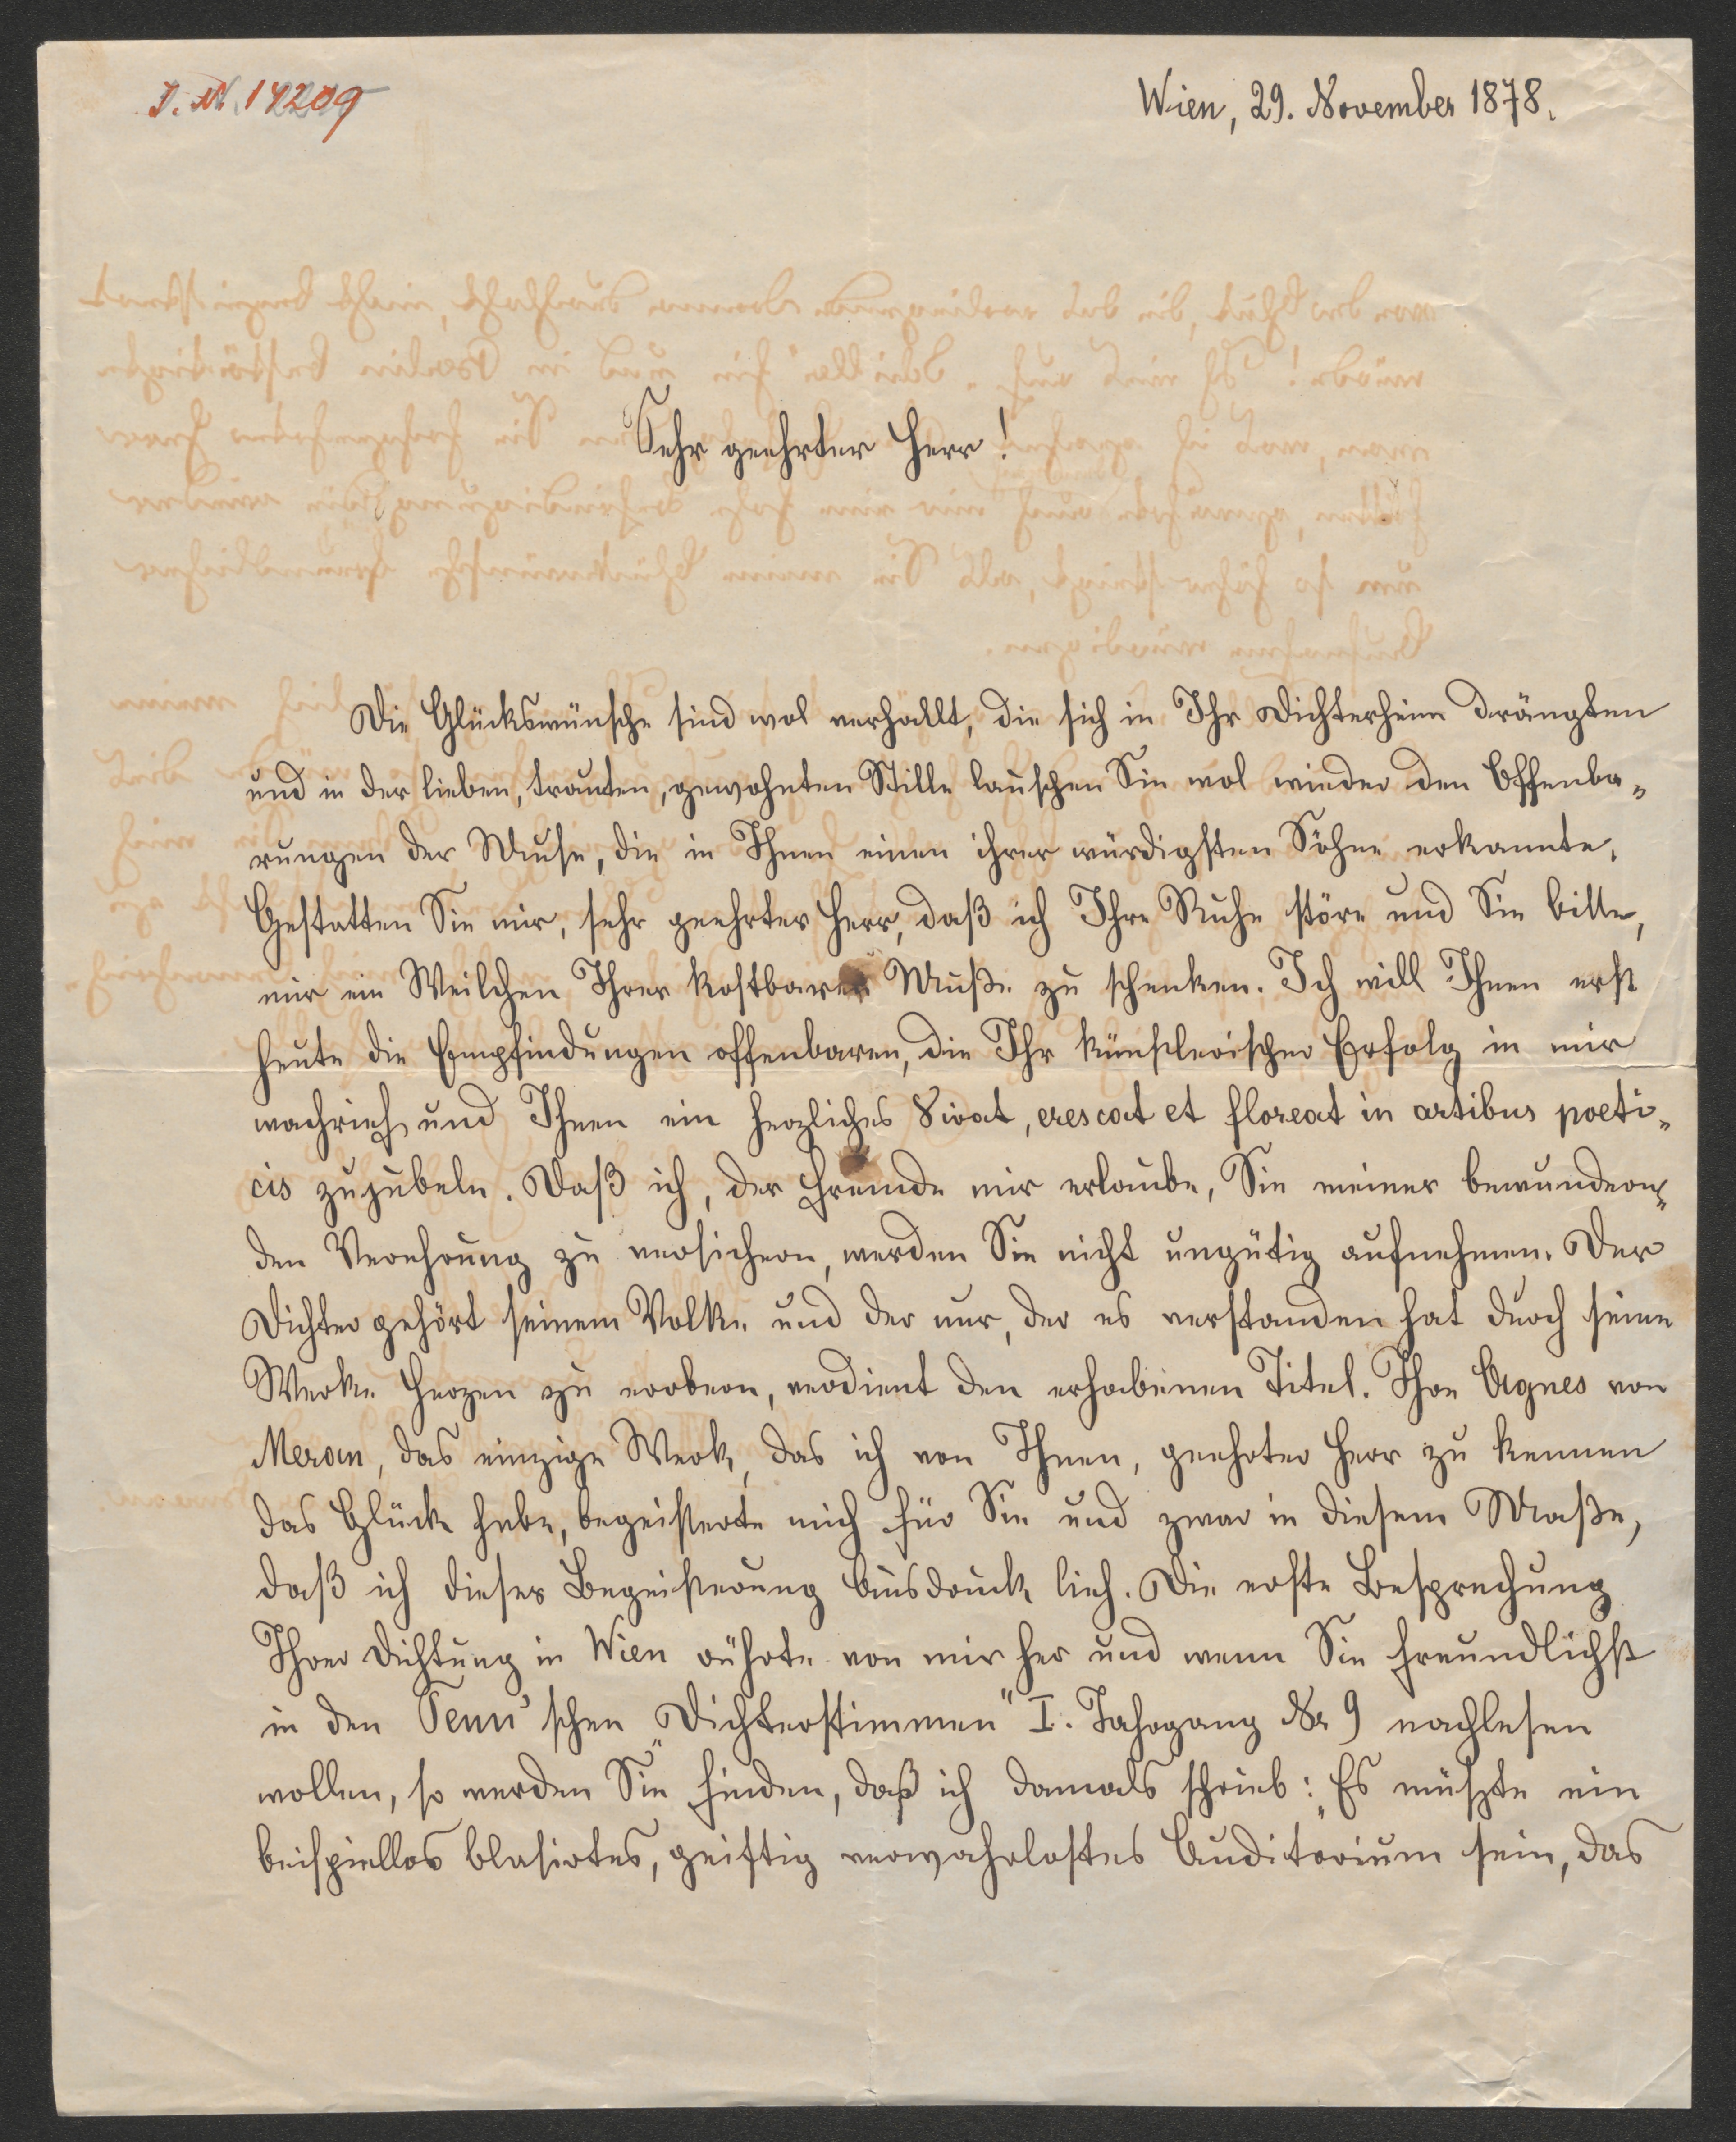 J. N. 14209
Wien, 29. November 1878.
Sehr geehrter Herr!
Die Glückswünsche sind wol verhallt, die sich in Ihr Dichterheim drängten
und in der lieben, trauten, gewohnten Stille lauschen Sie wol wieder den Offenba„
rungen der Muse, die in Ihnen einen ihrer würdigsten Söhne erkannte.
Gestatten Sie mir, sehr geehrter Herr, daß ich Ihre Ruhe störe und Sie bitte,
mir ein Weilchen Ihrer kostbaren Muße zu schenken. Ich will Ihnen erst
heute die Empfindungen offenbaren, die Ihr künstlerischer Erfolg in mir
wachrief und Ihnen ein herzliches Vivat, crescat et floreat in artibus poeti„
cis zuzubeln. Daß ich, der Fremde mir erlaube, Sie meiner bewundern„
den Verehrung zu versichern, werden Sie nicht ungütig aufnehmen. Der
Dichter gehört seinem Volke und der nur, der es verstanden hat durch seine
Werke Herzen zu erobern, verdient den erhabenen Titel. Ihre Agnes von
Meran, das einzige Werk, das ich von Ihnen, geehrter Herr zu kennen
das Glück habe, begeisterte mich für Sie und zwar in diesem Maße,
daß ich dieser Begeisterung Ausdruck lieh. Die erste Besprechung
Ihrer Dichtung in Wien rührte von mir her und wenn Sie freundlichst
in den Temu'schen „Dichterstimmen" I. Jahrgang No 9 nachlesen
wollen, so werden Sie finden, daß ich damals schrieb: „Es müßte ein
beispiellos blasirtes, geistig verwahrlostes Auditorium sein, das